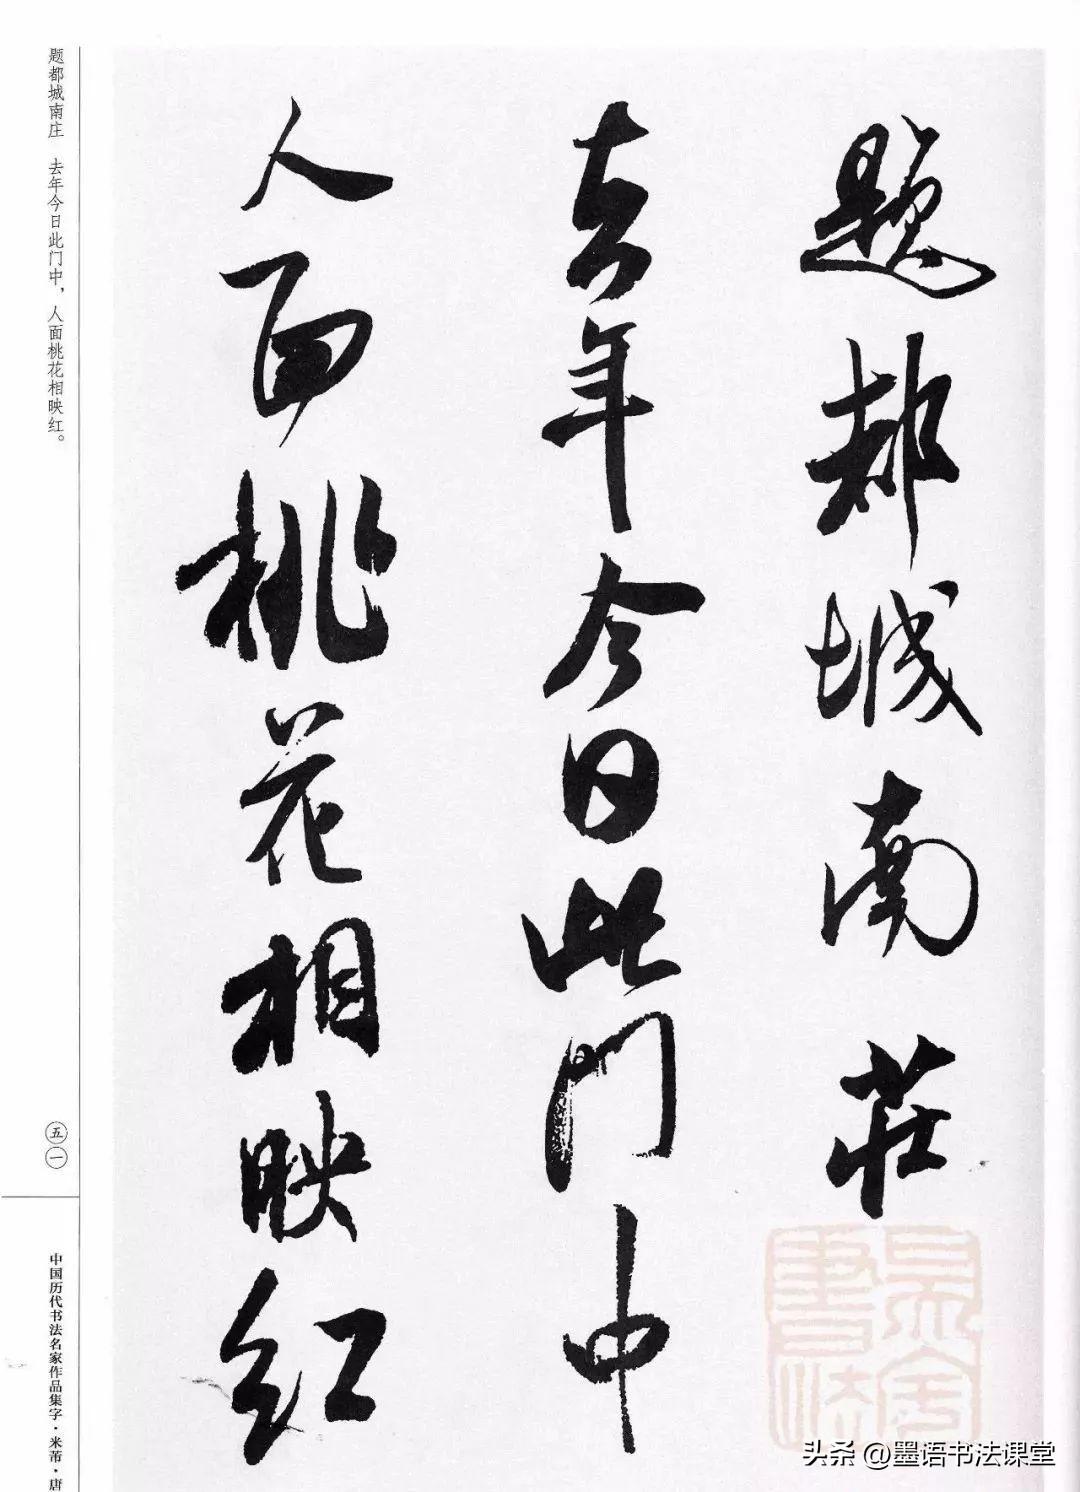 題都城南莊
去年今日此門中
人面桃花相映红
题都城南庄　去年今日此门中，人面桃花相映红。
五一
中国历代书法名家作品集字·米芾·唐
头条 @墨语书法课堂